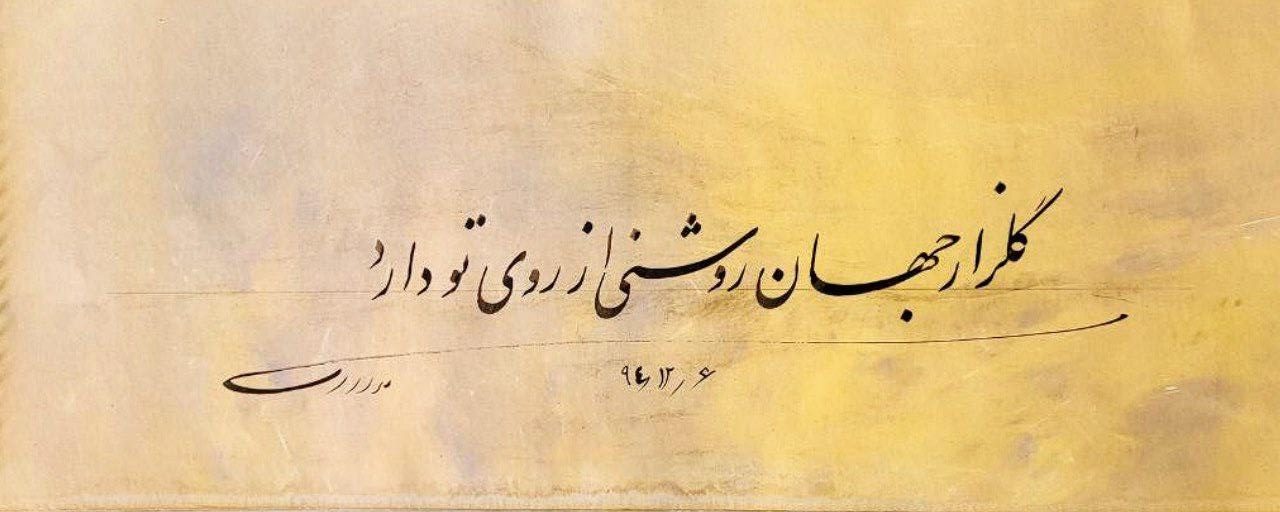 گلزار جهان روشنی از روی تو دارد
۹۴/۱۲/۶